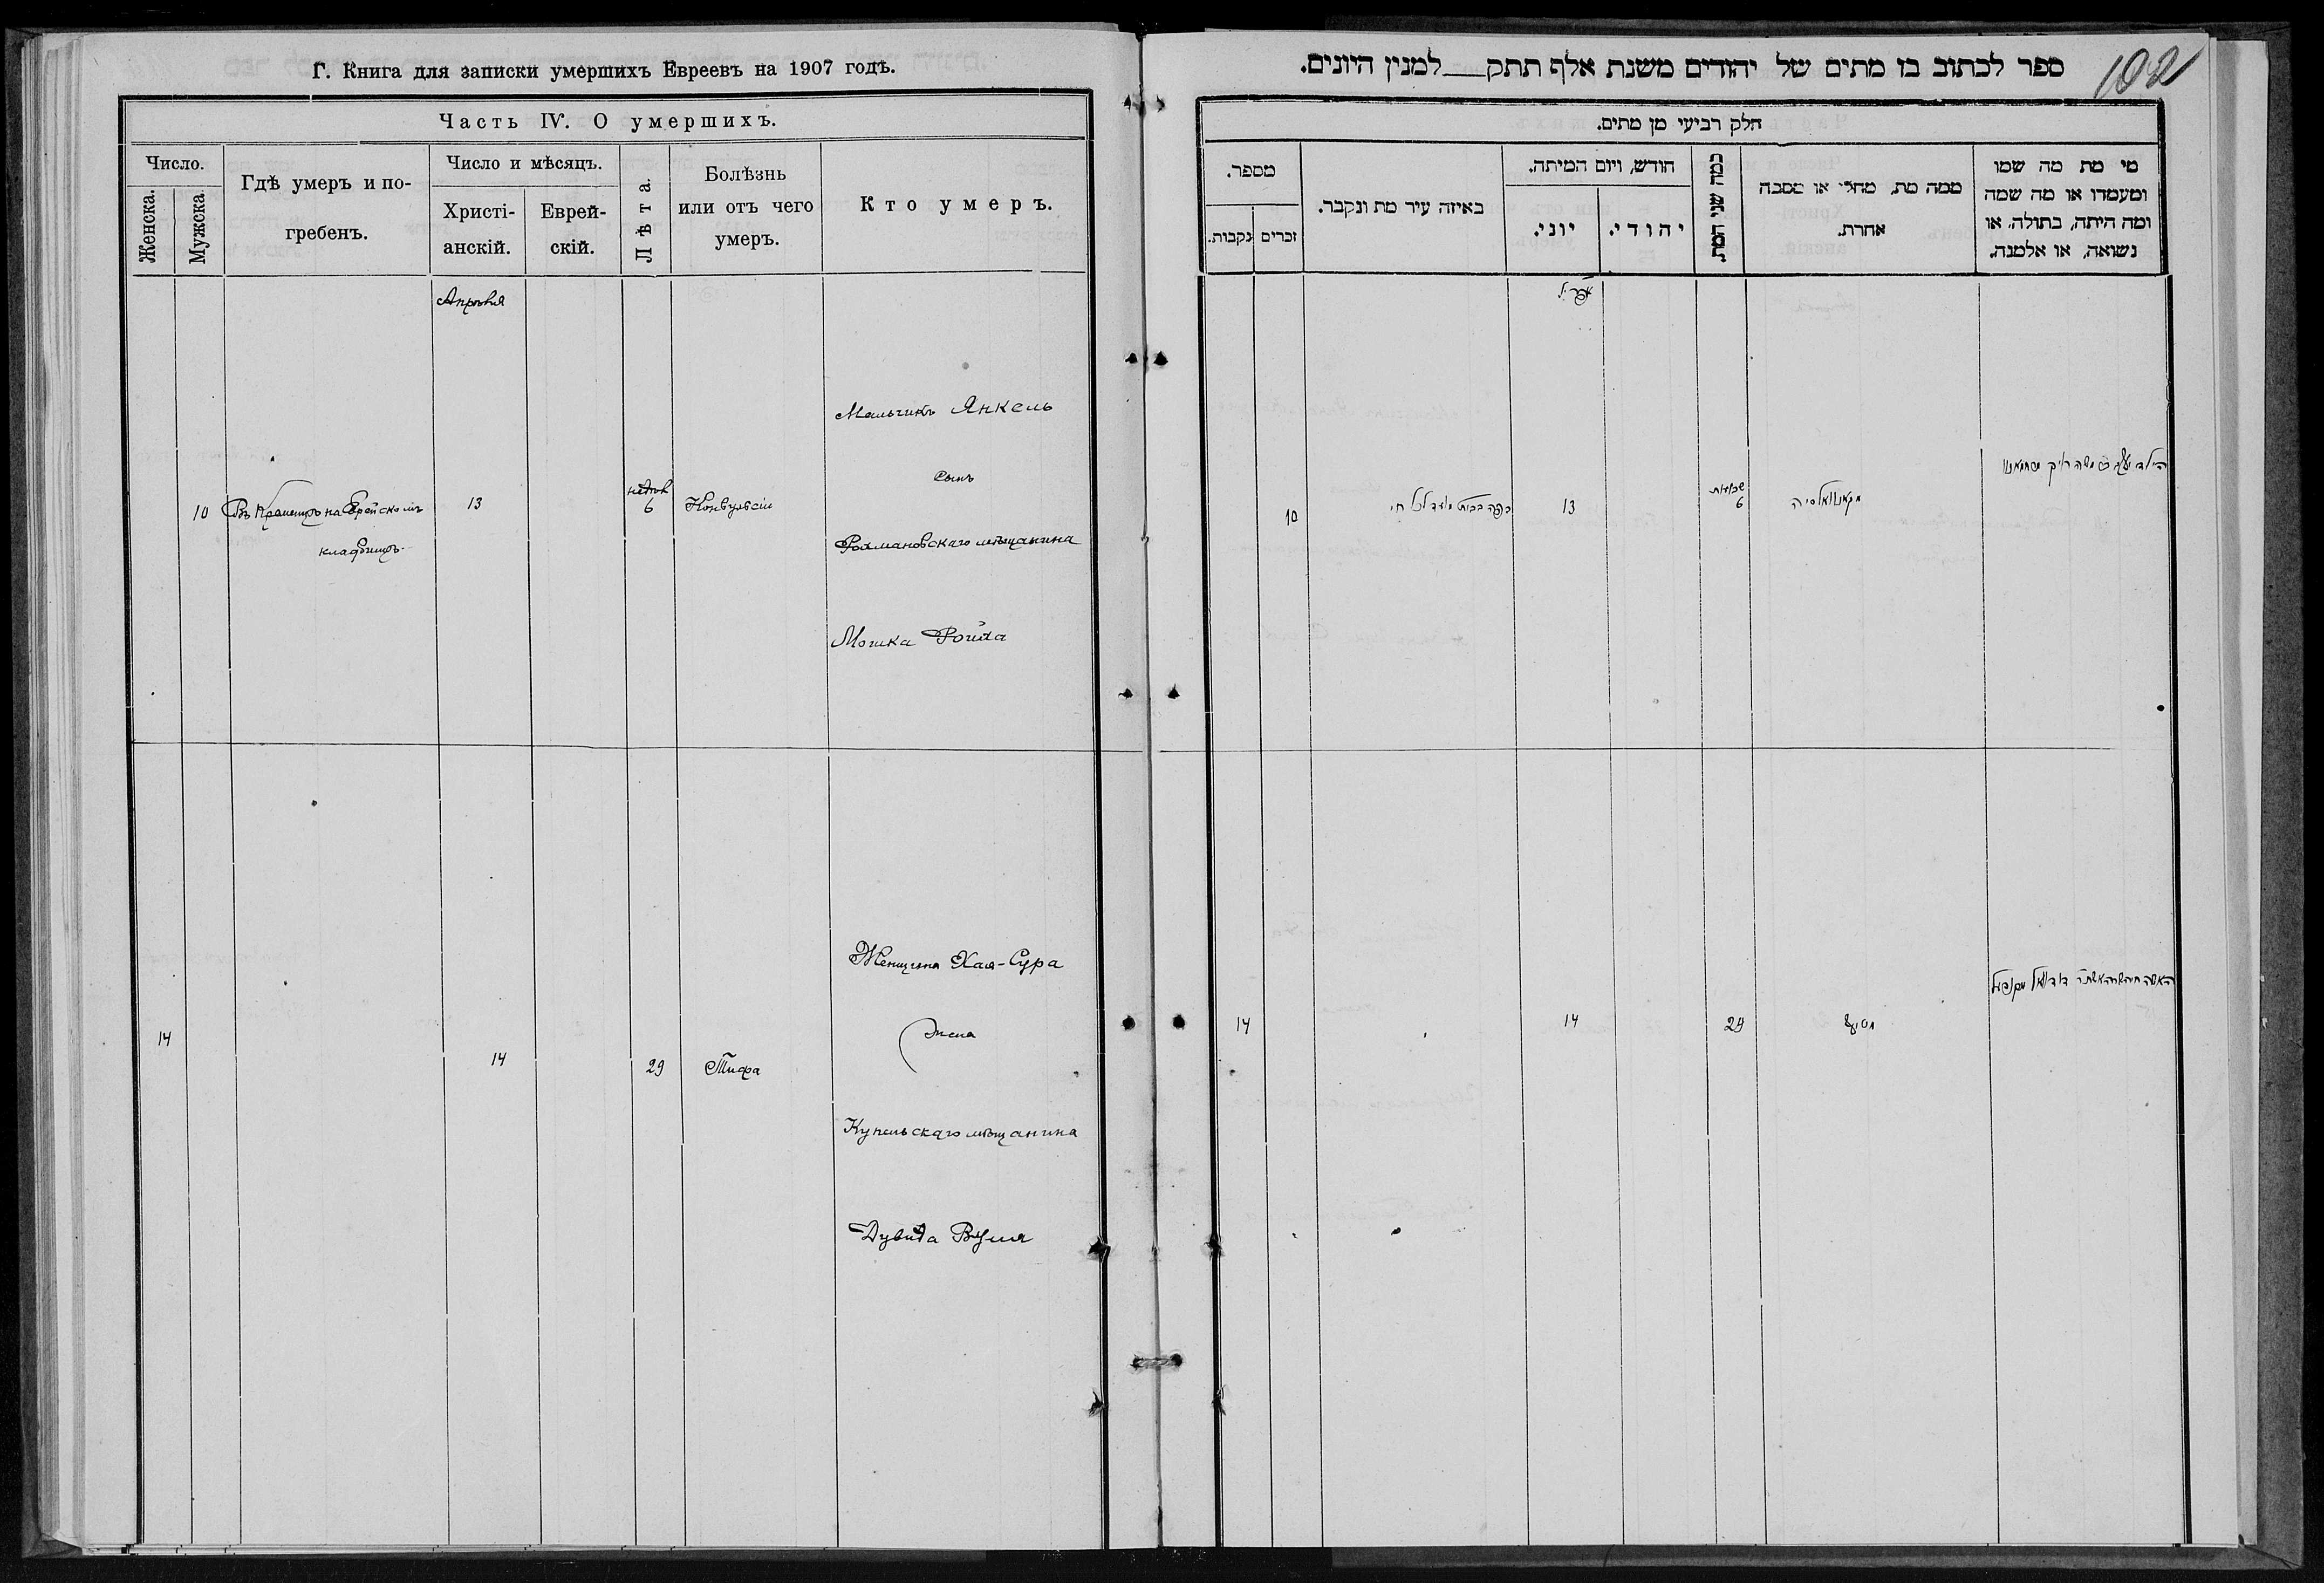 Г. Книга для записки умершихъ Евреевъ на 1907 годѣ.
Часть IV. О умершихъ.
Число.
Женска.
Мужска
Гдѣ умеръ и по-
гребенъ.
Число и мѣсяцъ.
Христі-
анскій.
Еврей-
скій.
Лѣта.
Болѣзнь
или отъ чего
умеръ.
Кто умеръ.
Апрѣля
Мальчикъ Янкель
сынъ
10 Въ Кременцѣ на Еврейскомъ 13 6 Конвульсіи
кладбищѣ
Рахмановскаго мѣщанина
Мошка Ройха
Женщина Хая-Сура
жена
14 14 29 Тифа
Купельскаго мѣщанина
Дувида Вуля
102
ספר לכתוב בו מתים של יהודים משנת אלף תתק למנין היונים.
חלק רביעי מן מתים.
מי מת מה שמו
ומעמדו או מה שמה
ומה היתה, בתולה, או
נשואה, או אלמנה.
ממה מת, מחלי או מסבה
אחרת.
כמה שני המת.
חודש, ויום המיתה.
יהודי.
יוני.
באיזה עיר מת ונקבר.
מספר.
זכרים
נקבות.
אפריל
הילד יעקב
שבועות
6
13
10
האשה
29
14
14